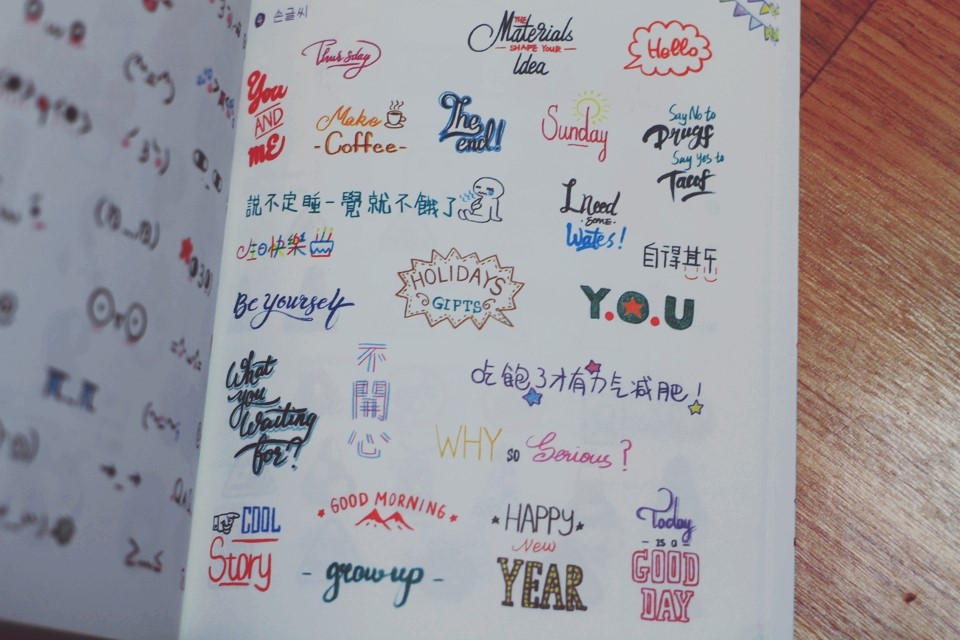 손글씨
Thursday
THE
Materials
SHAPE YOUR
Idea
Hello
You
AND
mE
Make
-Coffee-
The
end!
Sunday
Say No to
Drugs
Say yes to
Tacos
說不定睡一覺就不餓了
I need
SOME
Water!
生日快樂
自得其乐
HOLIDAYS
GIFTS
Be Yourself
Y.O.U
What
you
Waiting
for?
不
開
心
吃飽了才有力气减肥!
WHY so Serious?
COOL
Story
GOOD MORNING
- grow up -
HAPPY
New
YEAR
Today
- IS a -
GOOD
DAY